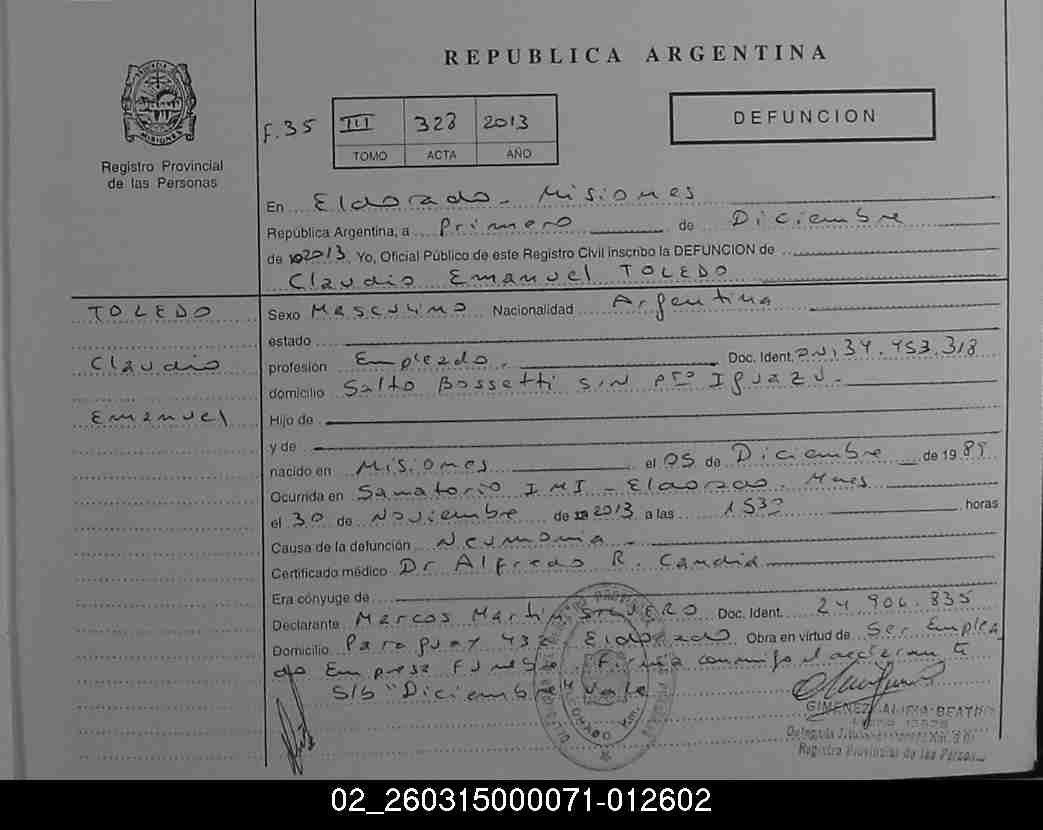 REPUBLICA ARGENTINA
F.35 III 323 2013
TOMO ACTA AÑO
DEFUNCION
PROVINCIA DE MISIONES
Registro Provincial
de las Personas
En Eldorado - Misiones
República Argentina, a Primero de Diciembre
de 2013. Yo, Oficial Público de este Registro Civil inscribo la DEFUNCION de
Claudio Emanuel TOLEDO
TOLEDO
Claudio
Emanuel
Sexo Masculino Nacionalidad Argentina
estado
profesión Empleado. Doc. Ident. 34.453.318
domicilio Salto Bossetti S/N Pto Iguazu.
Hijo de
y de
nacido en Misiones el 05 de Diciembre de 1989
Ocurrida en Sanatorio IMI - Eldorado. Mnes
el 30 de Noviembre de 2013 a las 1530 horas
Causa de la defunción Neumonia
Certificado médico Dr Alfredo R. Candia
Era cónyuge de
Declarante Marcos Martin Doc. Ident. 24 906.835
Domicilio Paraguay 432 Eldorado Obra en virtud de Ser Emplea
do Empresa Funebre. Firma conmigo el declarante
S/b "Diciembre" Vale
GIMENEZ BEATRIZ
Registro Provincial de las Person
02_260315000071-012602